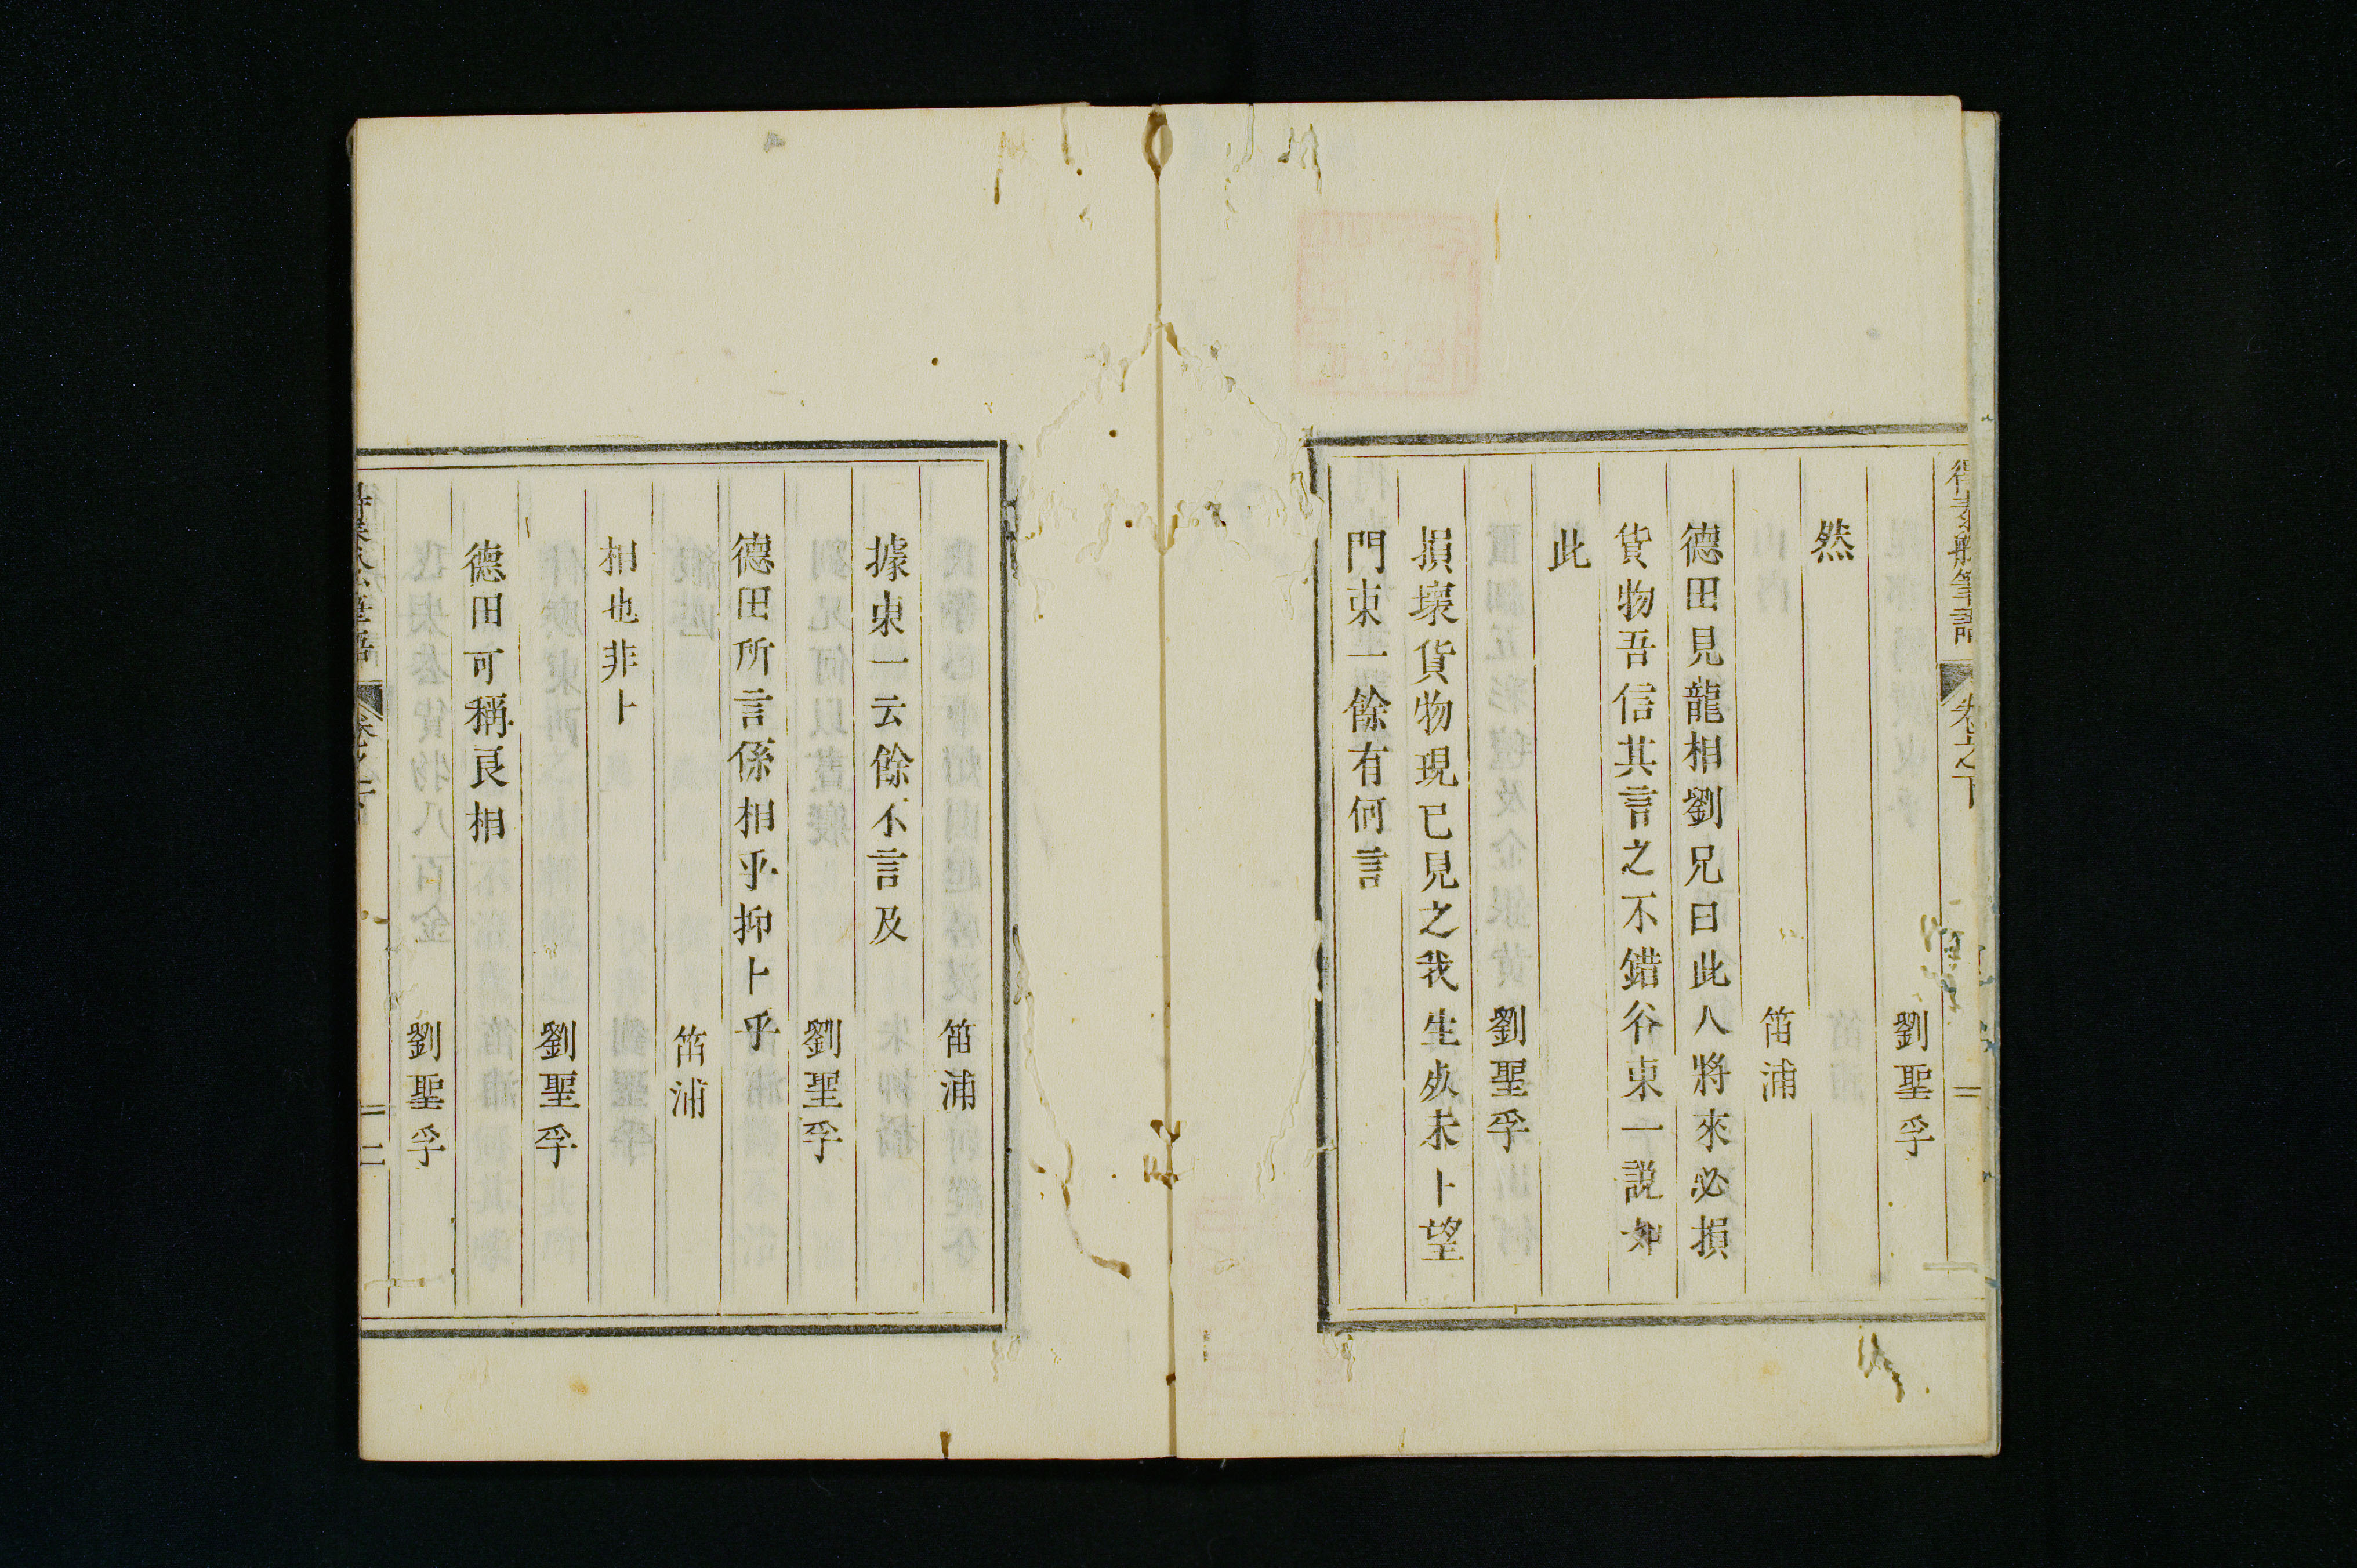 得泰船筆語 卷之下 二
劉聖孚
然
笛浦
德田見龍相劉兄曰此人將來必損
貨物吾信其言之不錯谷東一説如
此
劉聖孚
損壞貨物現已見之我生㱕未卜望
門東一餘有何言
笛浦
據東一云餘不言及
劉聖孚
德田所言係相乎抑卜乎
笛浦
相也非卜
劉聖孚
德田可稱良相
劉聖孚